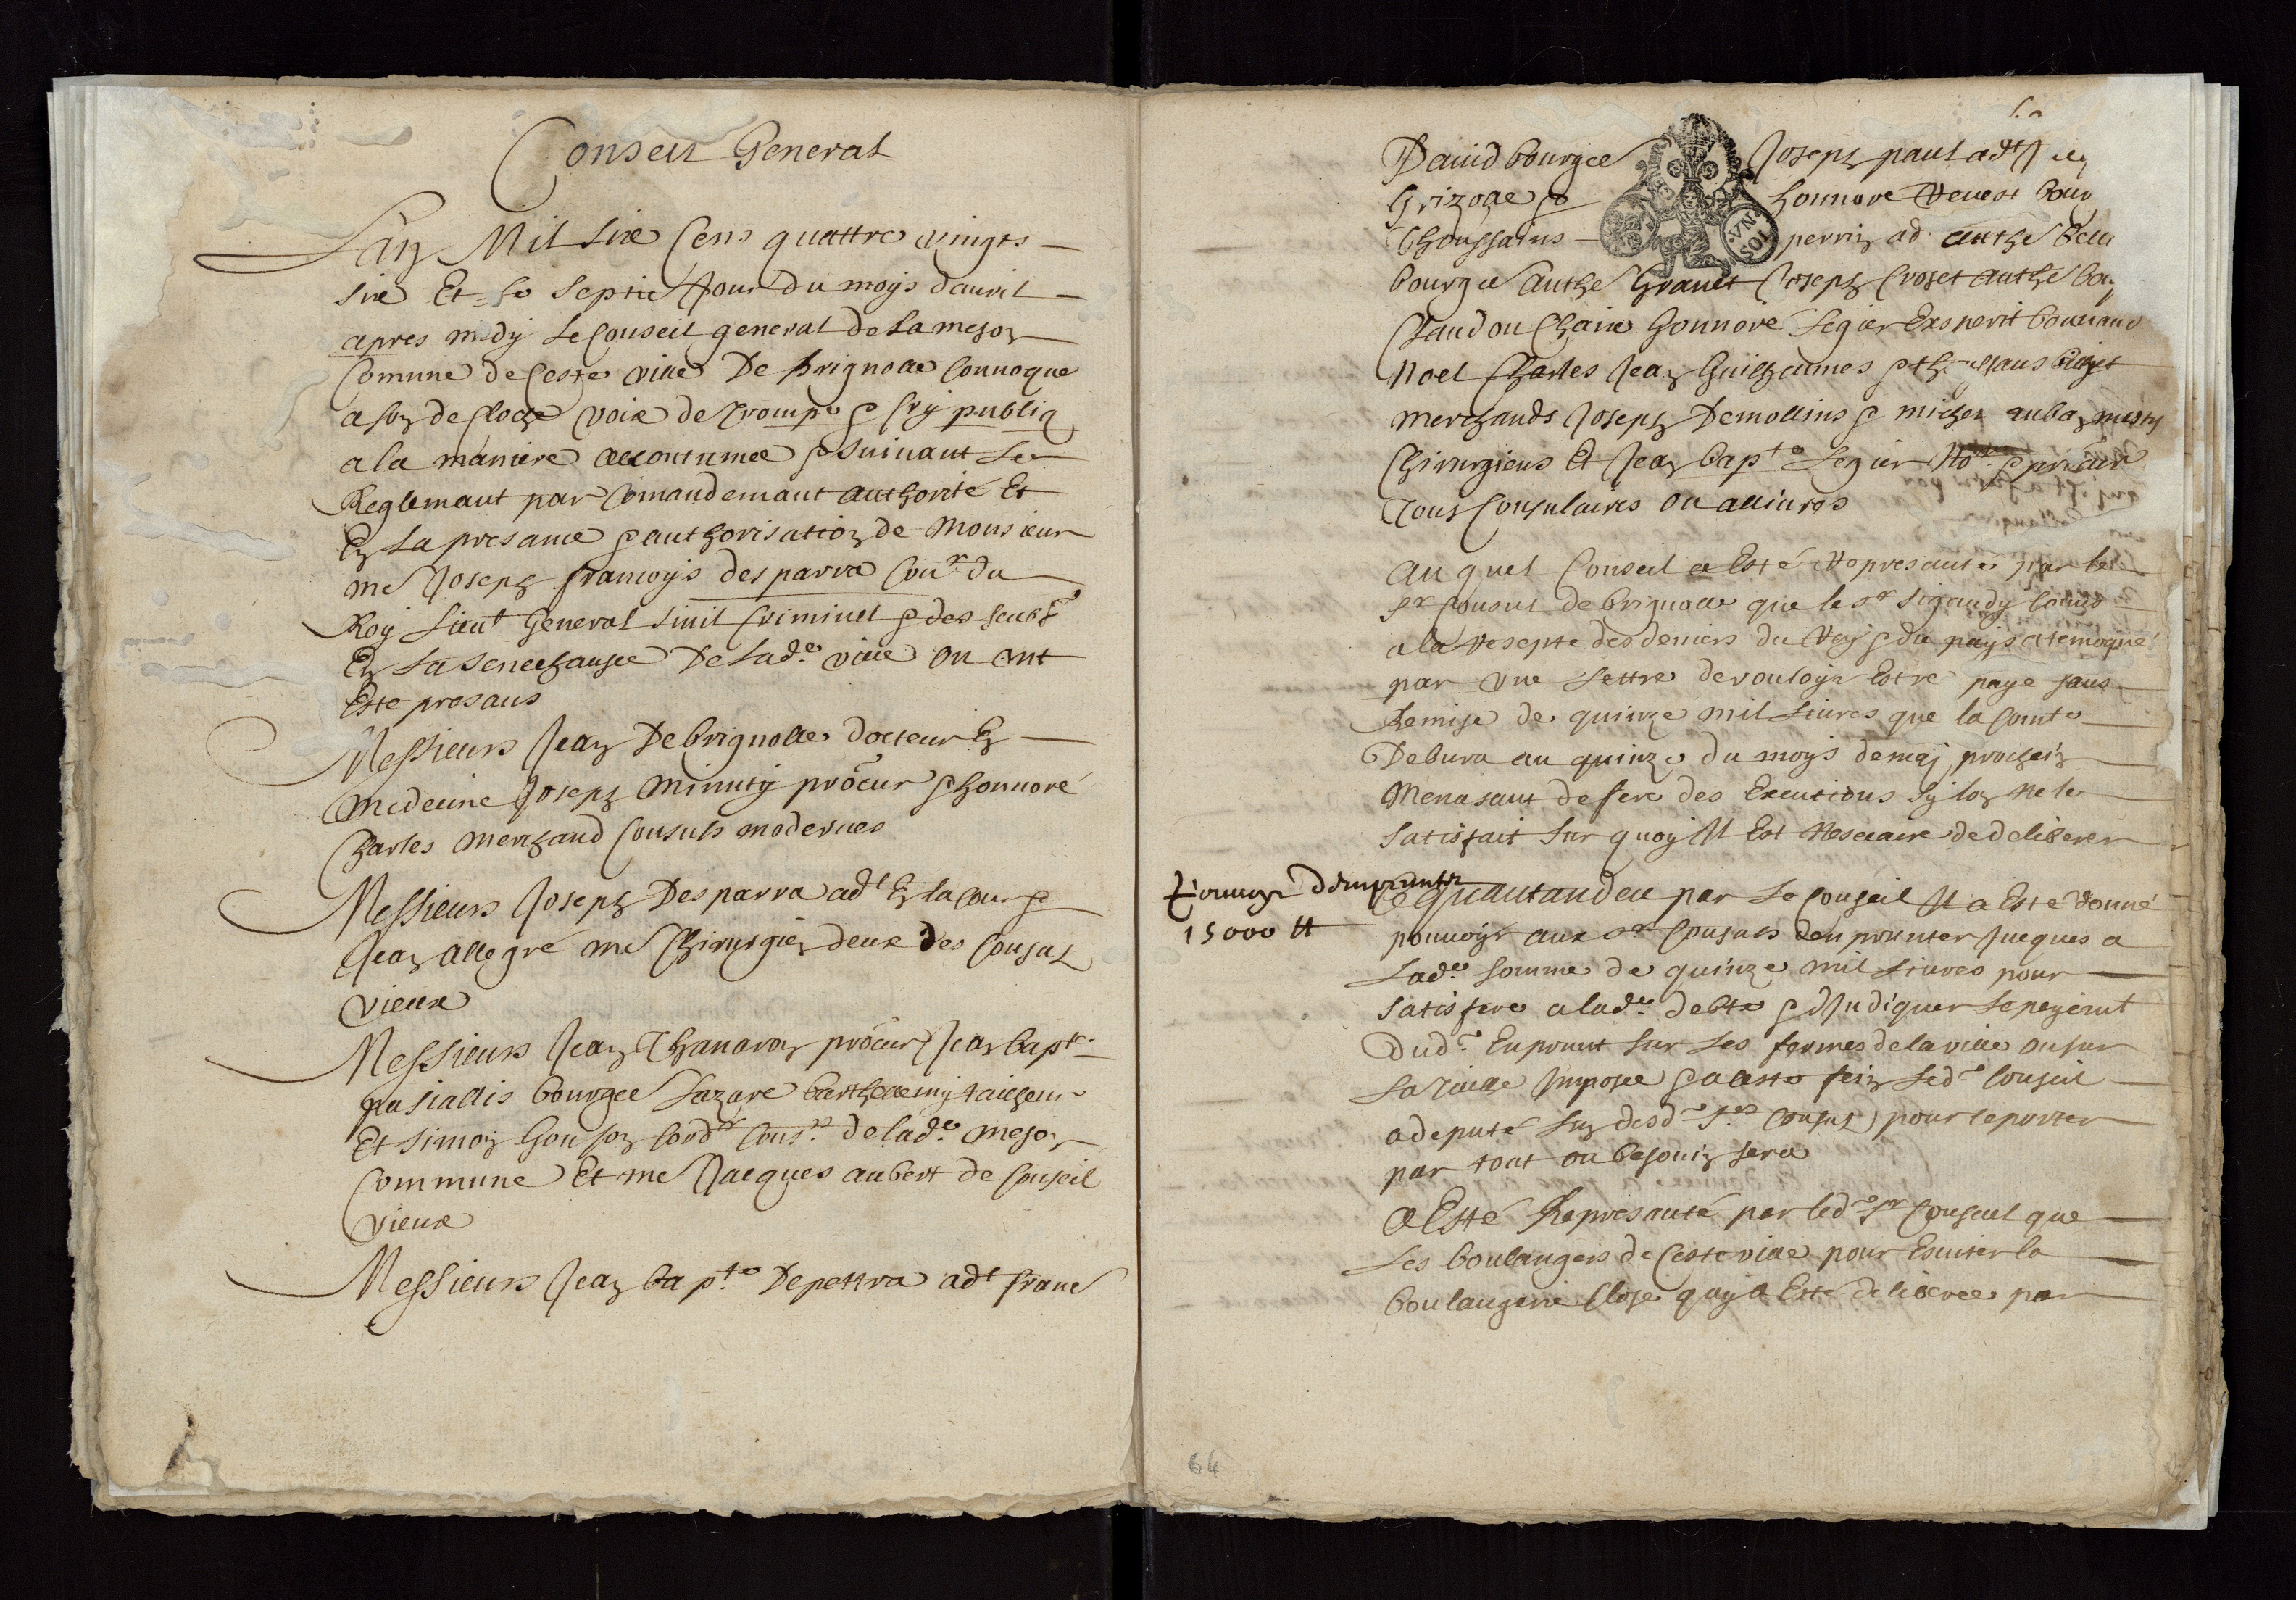 Conseil General
L'an Mil six Cens quattre vingts
six Et le septie Jour du moys d'auril
apres midy Le Conseil general de la meson
Comune de Ceste ville De Brignolle Conuoque
a son de Cloche voix de trompe & Cry publiq
a la maniere accoutumee & suiuant Le
Reglemant par Comandemant authorité Et
En La presance & authorisation de Monsieur
me Joseph francoys desparra Conr du
Roy Lieut General siuil Criminel & des
En La Senechausee De Lade ville ou ont
Esté presans
Messieurs Jean De brignolle docteur En
Medecine Joseph Minuty procur & honnoré
Charles Merchand Consuls modernes
Messieurs Joseph Desparra adt En la Cour &
Jean allegre me Chirurgien deux des Consuls
vieux
Messieurs Jean Thanaron procur Jean bapte
bourgee Lazare barthelemy
Et Simon Consrs de lade meson
Commune Et me Jacques aubert de Conseil
vieux
Messieurs Jean bapte De pettra adt franc
Dauid bourgee Joseph paul adt
Grizolle & honnore Venest
perrin ad anthe
bourgee anthe Granet Joseph Croset anthe
Claudou Chaix honnoré Legier Exsperit
Noel Charles Jean Guilheaumes &
Merchands Joseph Demollins & michel
Chirurgiens Et Jean bapte Legier Nore & priseur
Tous Consulaires ou alliures
Auquel Conseil a Esté represanté par le
Sr Consul de brignolle que le Sr Sigaudy Comis
a la resepte des deniers du Roy & du pays a temogné
par vne Lettre de vouloyr Estre payé sans
Remise de quinze mil Liures que la Comte
Debura au quinze du moys de may prochein
Menasant de fere des Executions sy lon ne le
satisfait sur quoy Il Est Nesceaire de deliberer
pouuoyr d'emprunter
15000 ₶
Ce quautandeu par Le Conseil Il a Esté donné
pouuoyr aux srs Consuls denprunter Jucques a
Lade somme de quinze mil Liures pour
satisfere a lade debte & d'Indiquer Le peyemt
dud Enprunt sur Les fermes de la ville ou sur
La Taille Imposee & a ceste fein Led Conseil
a deputé Lun desd srs Consuls pour se porter
par tout ou besouin sera
A Esté Represanté par led sr Conseul que
Les boulangers de Ceste ville pour Esuiter la
boulangerie Close quy a Esté deliberee par
64